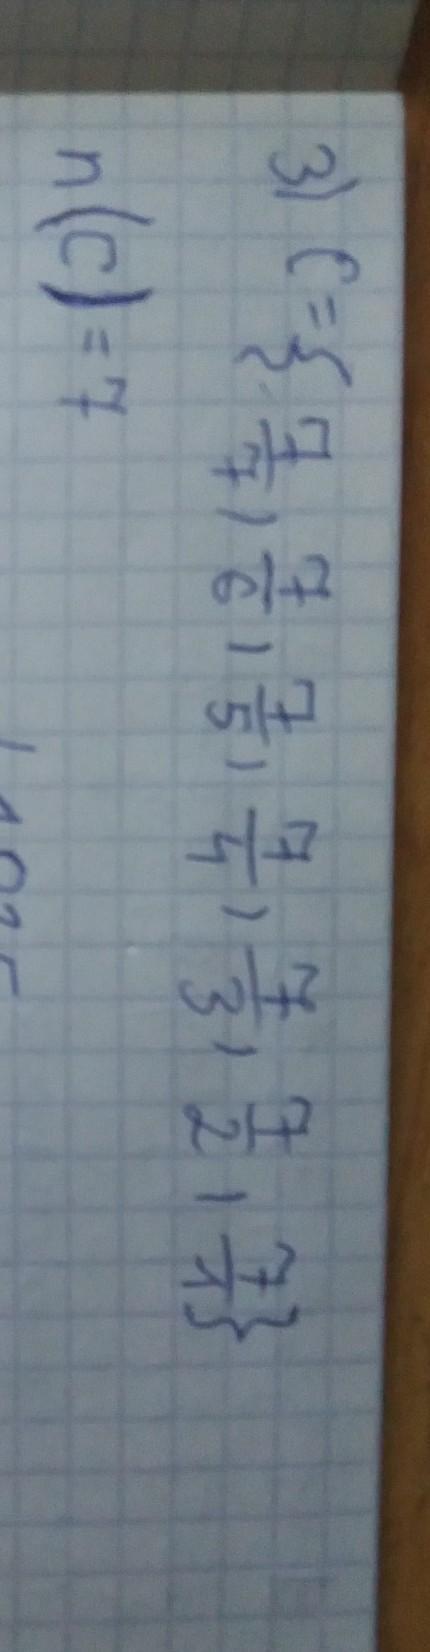 3) C = { 7/7, 7/6, 7/5, 7/4, 7/3, 7/2, 7/1 }
n(C) = 7